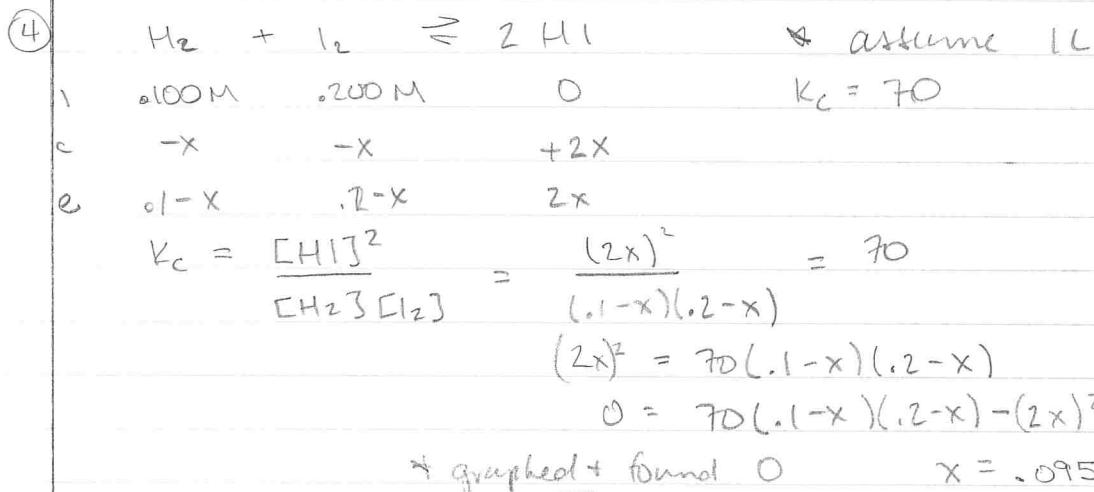 ④ H₂ + I₂ ⇌ 2 HI * assume 1L
i .100M .200M 0 Kc = 70
c -x -x +2x
e .1-x .2-x 2x
Kc = [HI]² / [H₂][I₂] = (2x)² / (.1-x)(.2-x) = 70
(2x)² = 70(.1-x)(.2-x)
0 = 70(.1-x)(.2-x)-(2x)²
* graphed + found 0 x = .095